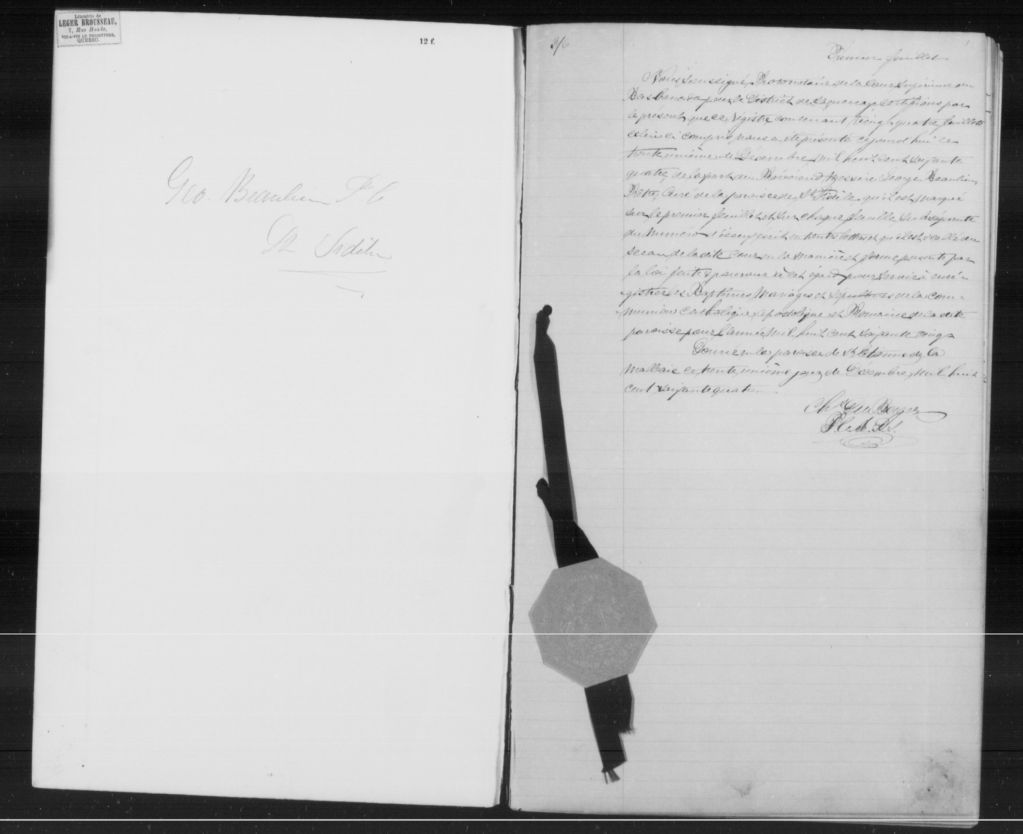 Librairie de
LEGER BROUSSEAU,
7, Rue Buade,
VIS-A-VIS LE PRESBYTERE,
QUEBEC.
12 f.
Geo. Beaulieu Ptr C
St Fidèle
Premier feuillet
Nous soussigné, Protonotaire de la Cour Supérieure du
Bas Canada pour le District de Saguenay certifions par
le présent que ce registre contenant vingt quatre feuillets
celui ci compris nous a été présenté cejourd'hui ce
trente unième de Décembre mil huit cent soixante
quatre de la part du Révérend Messire George Beaulieu
Ptre, Curé de la paroisse de St Fidèle, qu'il est marqué
sur le premier feuillet et sur chaque feuillet subséquent
du numéro écrit en toutes lettres et qu'il est scellé du
sceau de la dite Cour en la manière et forme par
la loi faite et pourvue et ce pour servir à enré-
gistrer les Baptêmes, Mariages et Sépultures de la com-
munion Catholique, Apostolique et Romaine de la dite
paroisse pour l'année mil huit cent soixante cinq.
Donné en la paroisse de St Etienne de la
Malbaie ce trente unième jour de Décembre mil huit
cent soixante quatre.